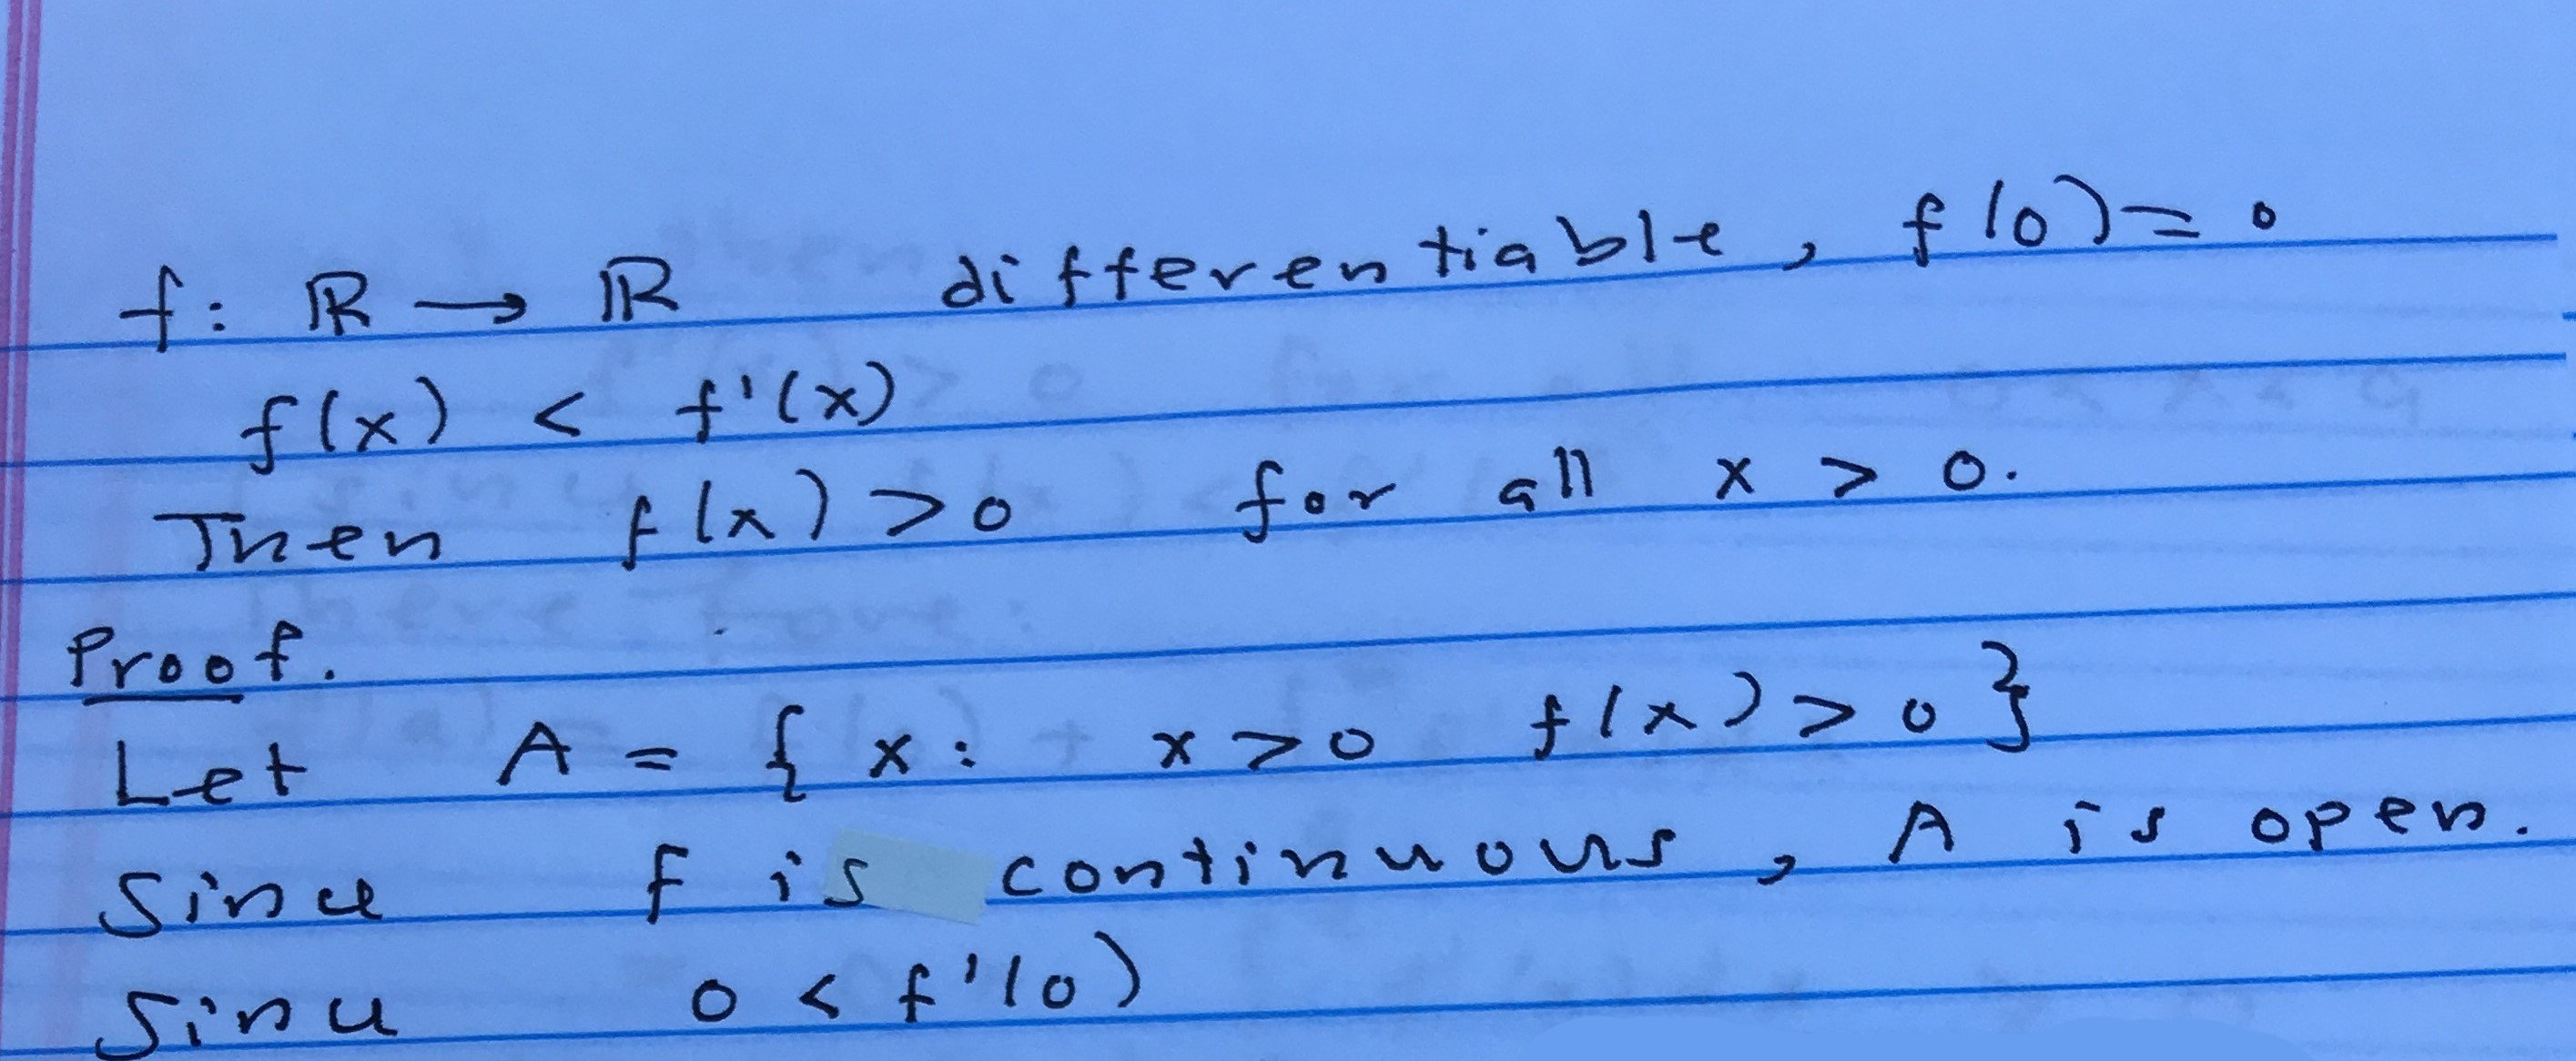 f: ℝ → ℝ differentiable, f(0) = 0
f(x) < f'(x)
Then f(x) > 0 for all x > 0.
Proof.
Let A = { x: x > 0 f(x) > 0 }
Since f is continuous, A is open.
Since 0 < f'(0)